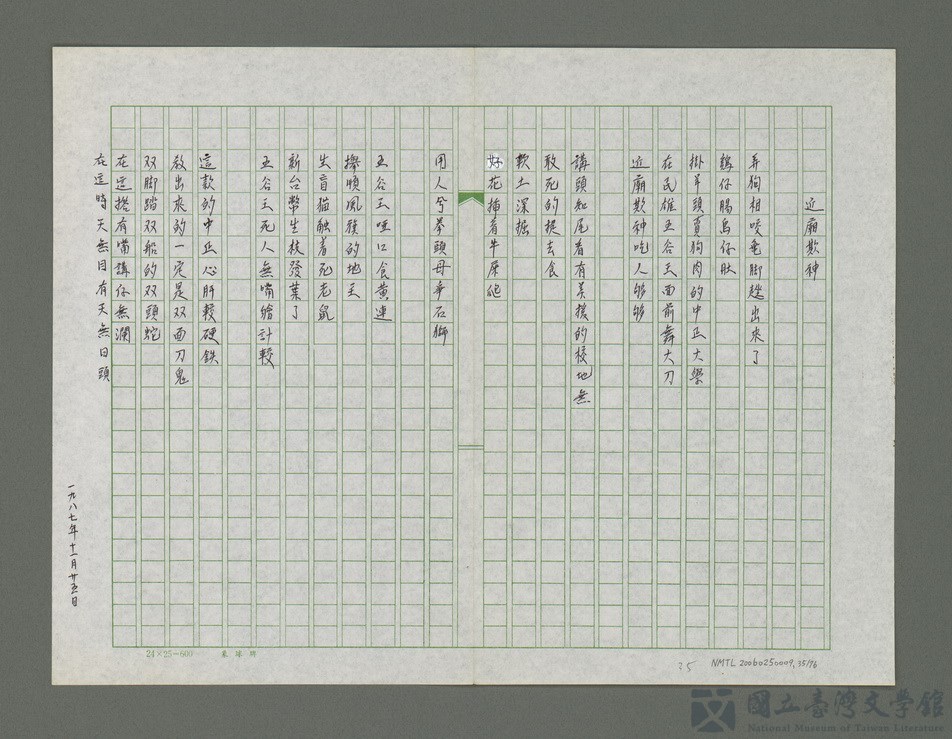 近廟欺神
弄狗相咬龜脚趖出來了
鷄仔腸鳥仔肚
掛羊頭賣狗肉的中正大學
在民雄五谷王面前舞大刀
近廟欺神吃人够够
講頭知尾看有美援的校地無
敢死的提去食
軟土深掘
好花插着牛屎
用人兮拳頭母舂石獅
五谷王啞口食黃連
攑順風旗的地主
生盲猫触着死老鼠
新台幣生枝發葉了
五谷王死人無嘴繪計較
這款的中正心肝較硬鉄
教出來的一定是双面刀鬼
双脚踏双船的双頭蛇
在這搭有嘴講伃無瀾
在這時天無目有天無日頭
一九八七年十一月廿五日
24×25=600
NMTL 20060250009, 35/96
35
國立臺灣文學館
National Museum of Taiwan Literature